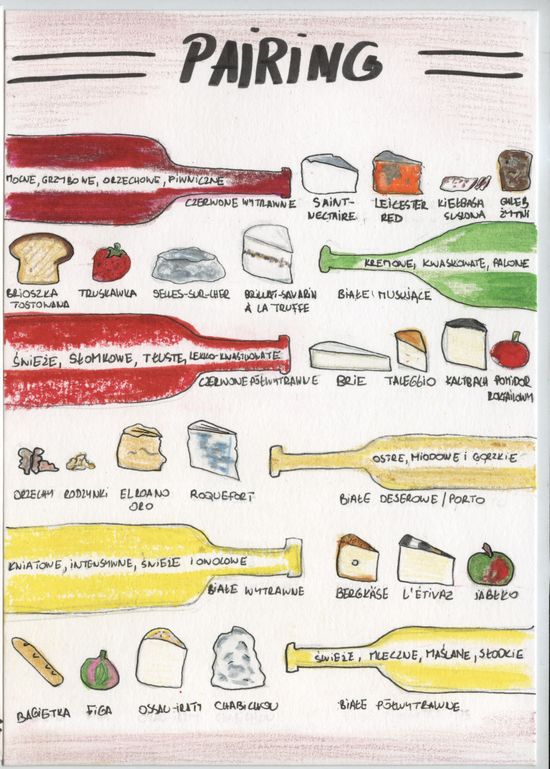 PAIRING
MOCNE, GRZYBOWE, ORZECHOWE, PIWNICZNE
CZERWONE WYTRAWNE
SAINT-
NECTAIRE
LEICESTER
RED
KIEŁBASA
SUSZONA
CHLEB
ŻYTNI
BRIOSZKA
TOSTOWANA
TRUSKAWKA
SELLES-SUR-CHER
BRILLAT-SAVARIN
À LA TRUFFE
KREMOWE, KWASKOWATE, PALONE
BIAŁE MUSUJĄCE
ŚWIEŻE, SŁOMKOWE, TŁUSTE, LEKKO-KWASKOWATE
CZERWONE PÓŁWYTRAWNE
BRIE
TALEGGIO
KALTBACH
POMIDOR
KOKTAJLOWY
ORZECHY
RODZYNKI
EL ROANO
ORO
ROQUEFORT
OSTRE, MIODOWE I GORZKIE
BIAŁE DESEROWE / PORTO
KWIATOWE, INTENSYWNE, ŚWIEŻE I OWOCOWE
BIAŁE WYTRAWNE
BERGKÄSE
L'ÉTIVAZ
JABŁKO
BAGIETKA
FIGA
OSSAU-IRATY
CHABICHOU
ŚWIEŻE, MLECZNE, MAŚLANE, SŁODKIE
BIAŁE PÓŁWYTRAWNE